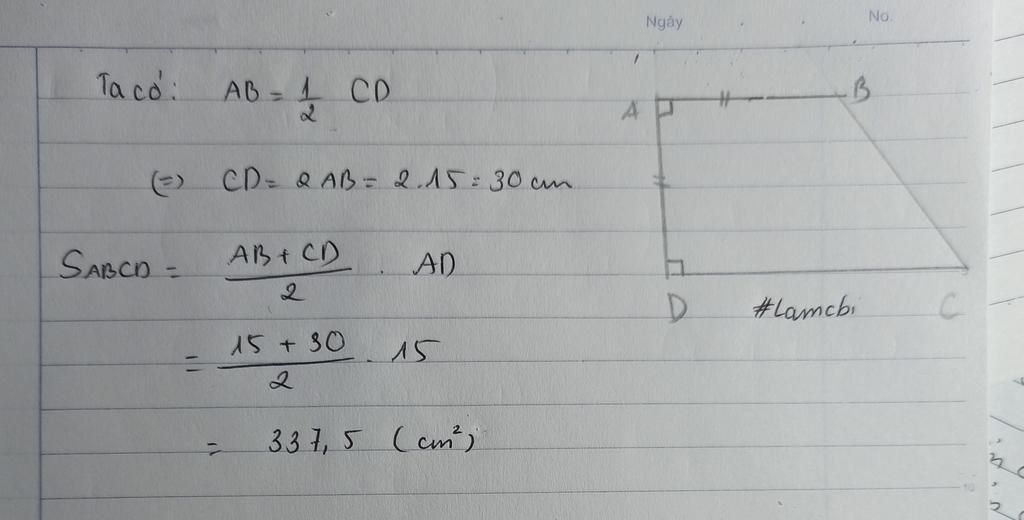 Ngày
No.
Ta có: AB = 1/2 CD
(=) CD = 2 AB = 2.15 = 30 cm
SABCD = AB + CD / 2 . AD
= 15 + 30 / 2 . 15
= 337,5 (cm²)
A
B
D
C
#Lamcbi
10